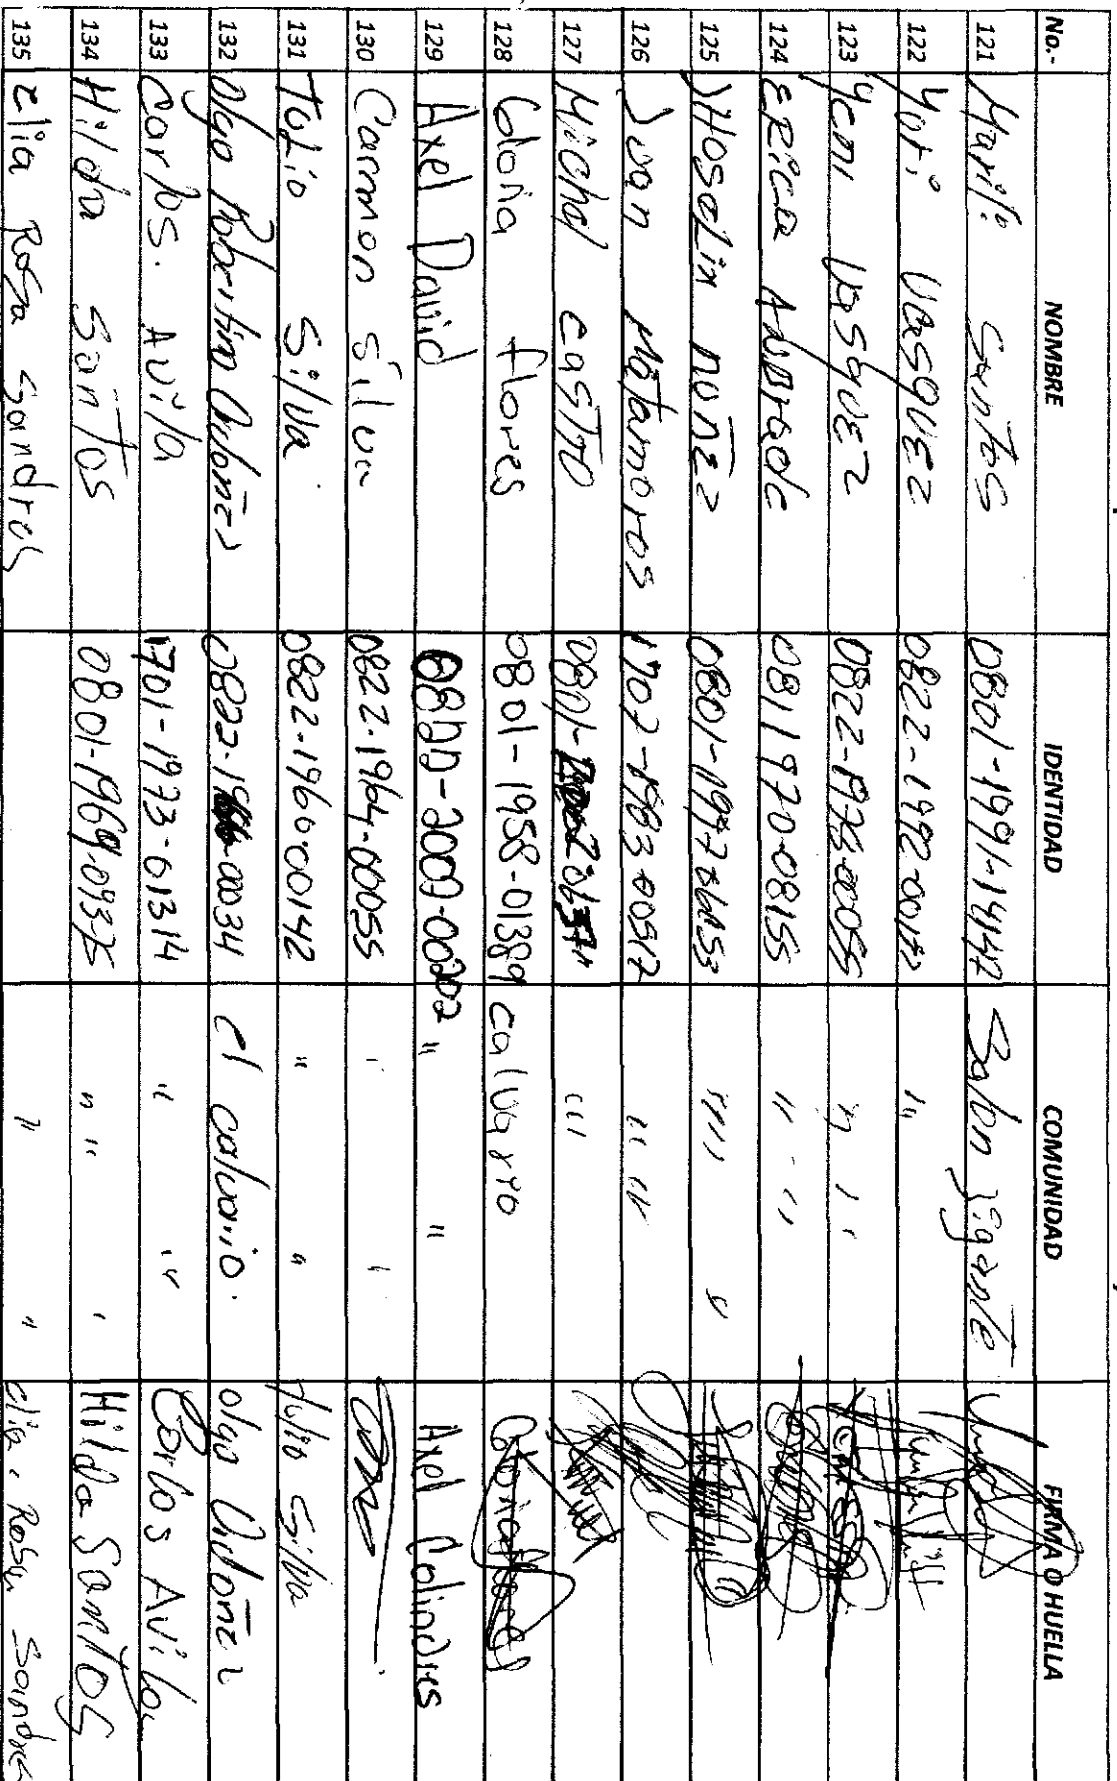 No.- NOMBRE IDENTIDAD COMUNIDAD FIRMA O HUELLA
121 Marili Santos 0801-1991-14142 Salon Jigante
122 Yoti VasqUEz 0822-1992-00142 "
123 Yeni VasqUEz 0822-1978-00055 " " "
124 ERica ANDRade 0811 1970-08155 " - "
125 JHoselin nuñez 0801-1997 " " "
126 Juan Matamoros 1707-1983-00517 " "
127 Michel CASTRO 0801- "
128 Gloria flores 0801-1958-01389 Calvario
129 Axel David -2000-00202 " " Axel Colindres
130 Carmon silva 0822-1964-00055 " "
131 Tulio Silva 0822-1960-00142 " " tulio Silva
132 Olga 0822- -00034 el calvario. olga Ordoñez
133 Carlos. Avila 1701-1973-01314 " " Carlos Avila
134 Hilda Santos 0801-1969-09375 " " " Hilda Santos
135 Elia Rosa Sandres " " elia. Rosa Sandres